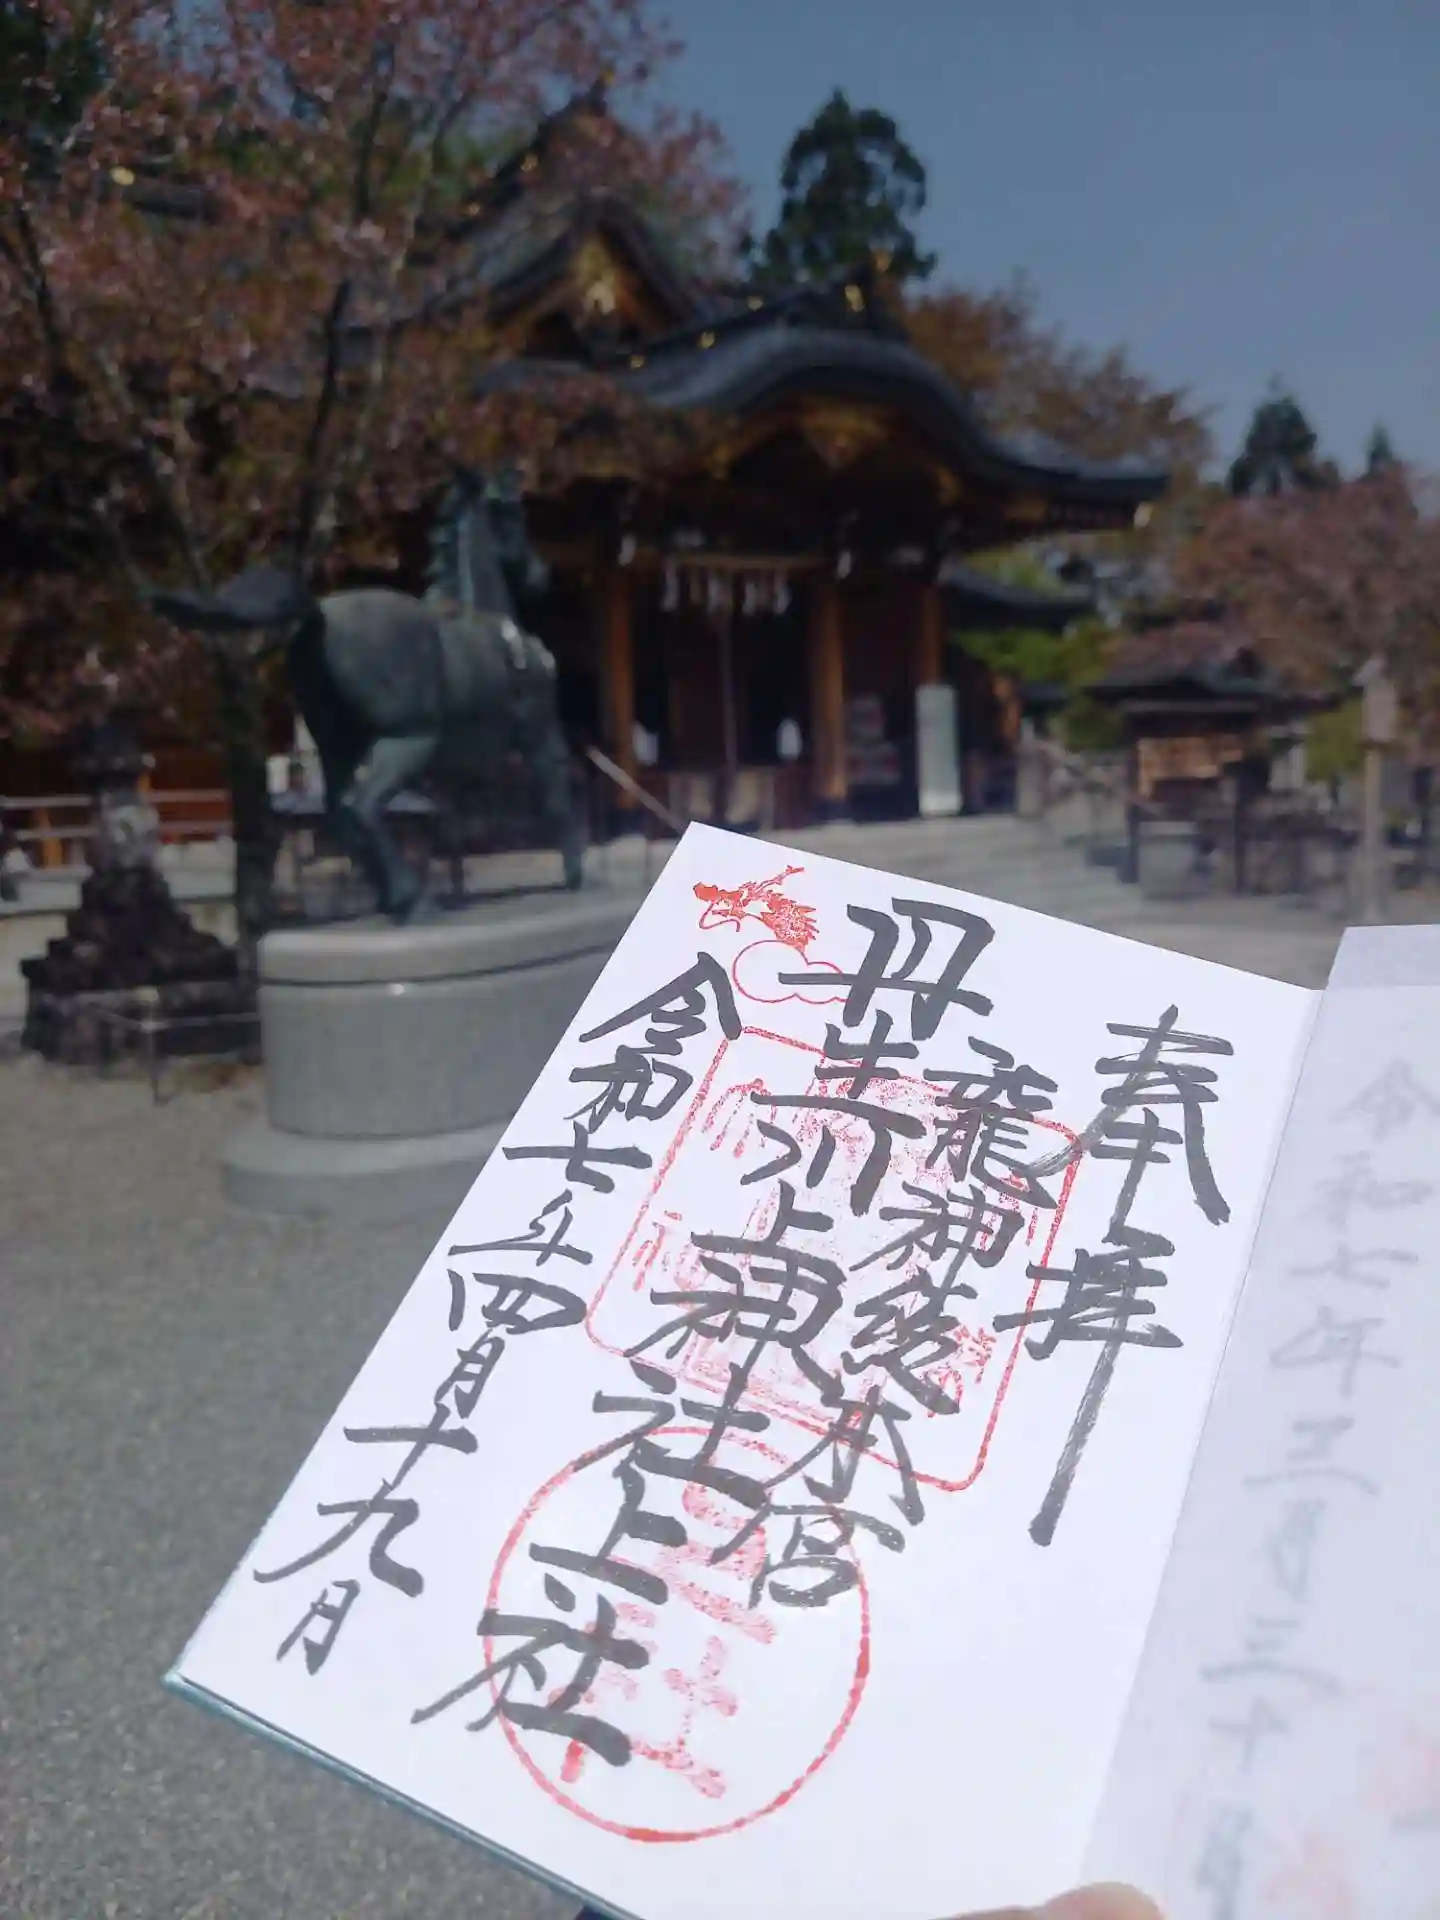 奉拝
龍神総本宮
丹生川上神社上社
令和七年四月十九日
令和七年三月三十日